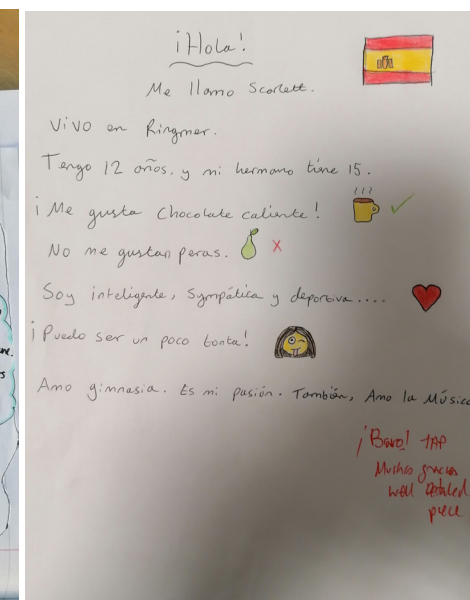 ¡Hola!
Me llamo Scarlett.
Vivo en Ringmer.
Tengo 12 años, y mi hermano tine 15.
¡Me gusta Chocolate caliente!
No me gustan peras.
Soy inteligente, Sympática y deportiva....
¡Puedo ser un poco tonta!
Amo gimnasia. Es mi pasión. También, Amo la Música
¡Bravo! 1AP
Muchas gracias
well detailed
piece